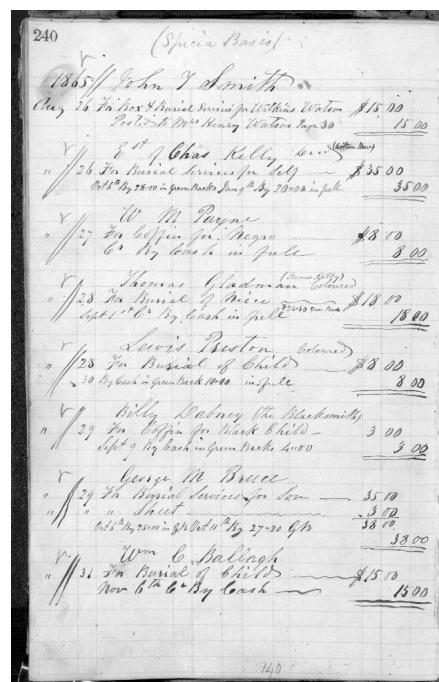 240
(Specia Basis)
1865 // John T Smith
Aug 26 For Box & Burial Services for Wilkins Watson $15.00
Posted to Mrs Henry Watson Page 30 15 00
Est of Chas Kelly Decd
" // 26 For Burial Services for Self $35 00
Oct 5th By 28=00 in Green Backs Jan 9th By 20=00 in full 35 00
W M Payne
" // 27 For Coffin for Negro $8 00
Cr By Cash in full 8 00
Thomas Gladman Coloured
" // 28 For Burial of Niece $18 00
Sept 1st Cr By Cash in full 18 00
Lewis Preston Coloured
" // 28 For Burial of Child $8 00
30 By Cash in Green Back 10=00 in full 8 00
Billy Dabney (the Blacksmith)
" // 29 For Coffin for Black Child 3 00
Sept 9 By Cash in Green Backs 4=00 3 00
George M Bruce
" // 29 For Burial Services for Son 35 00
" " " Sheet 3 00
Oct 5th By 25=00 in GB Oct 11th By 27=20 GB 38 00
38 00
Wm C Ballagh
" // 31 For Burial of Child $15 00
Nov 6th Cr By Cash 15 00
140